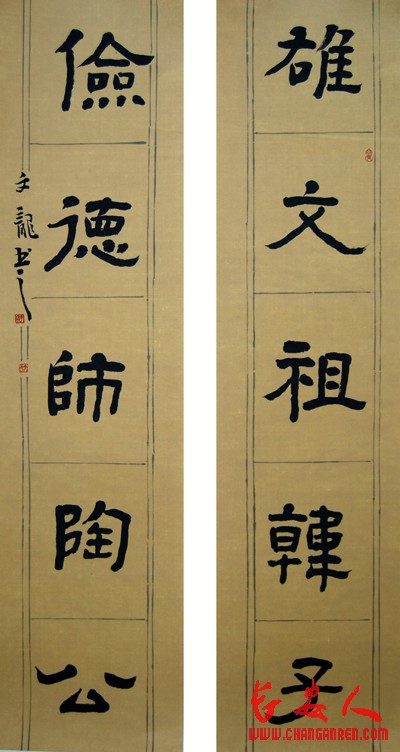 雄文祖韓子
儉德師陶公
龍書
长安人
WWW.CHANGANREN.COM